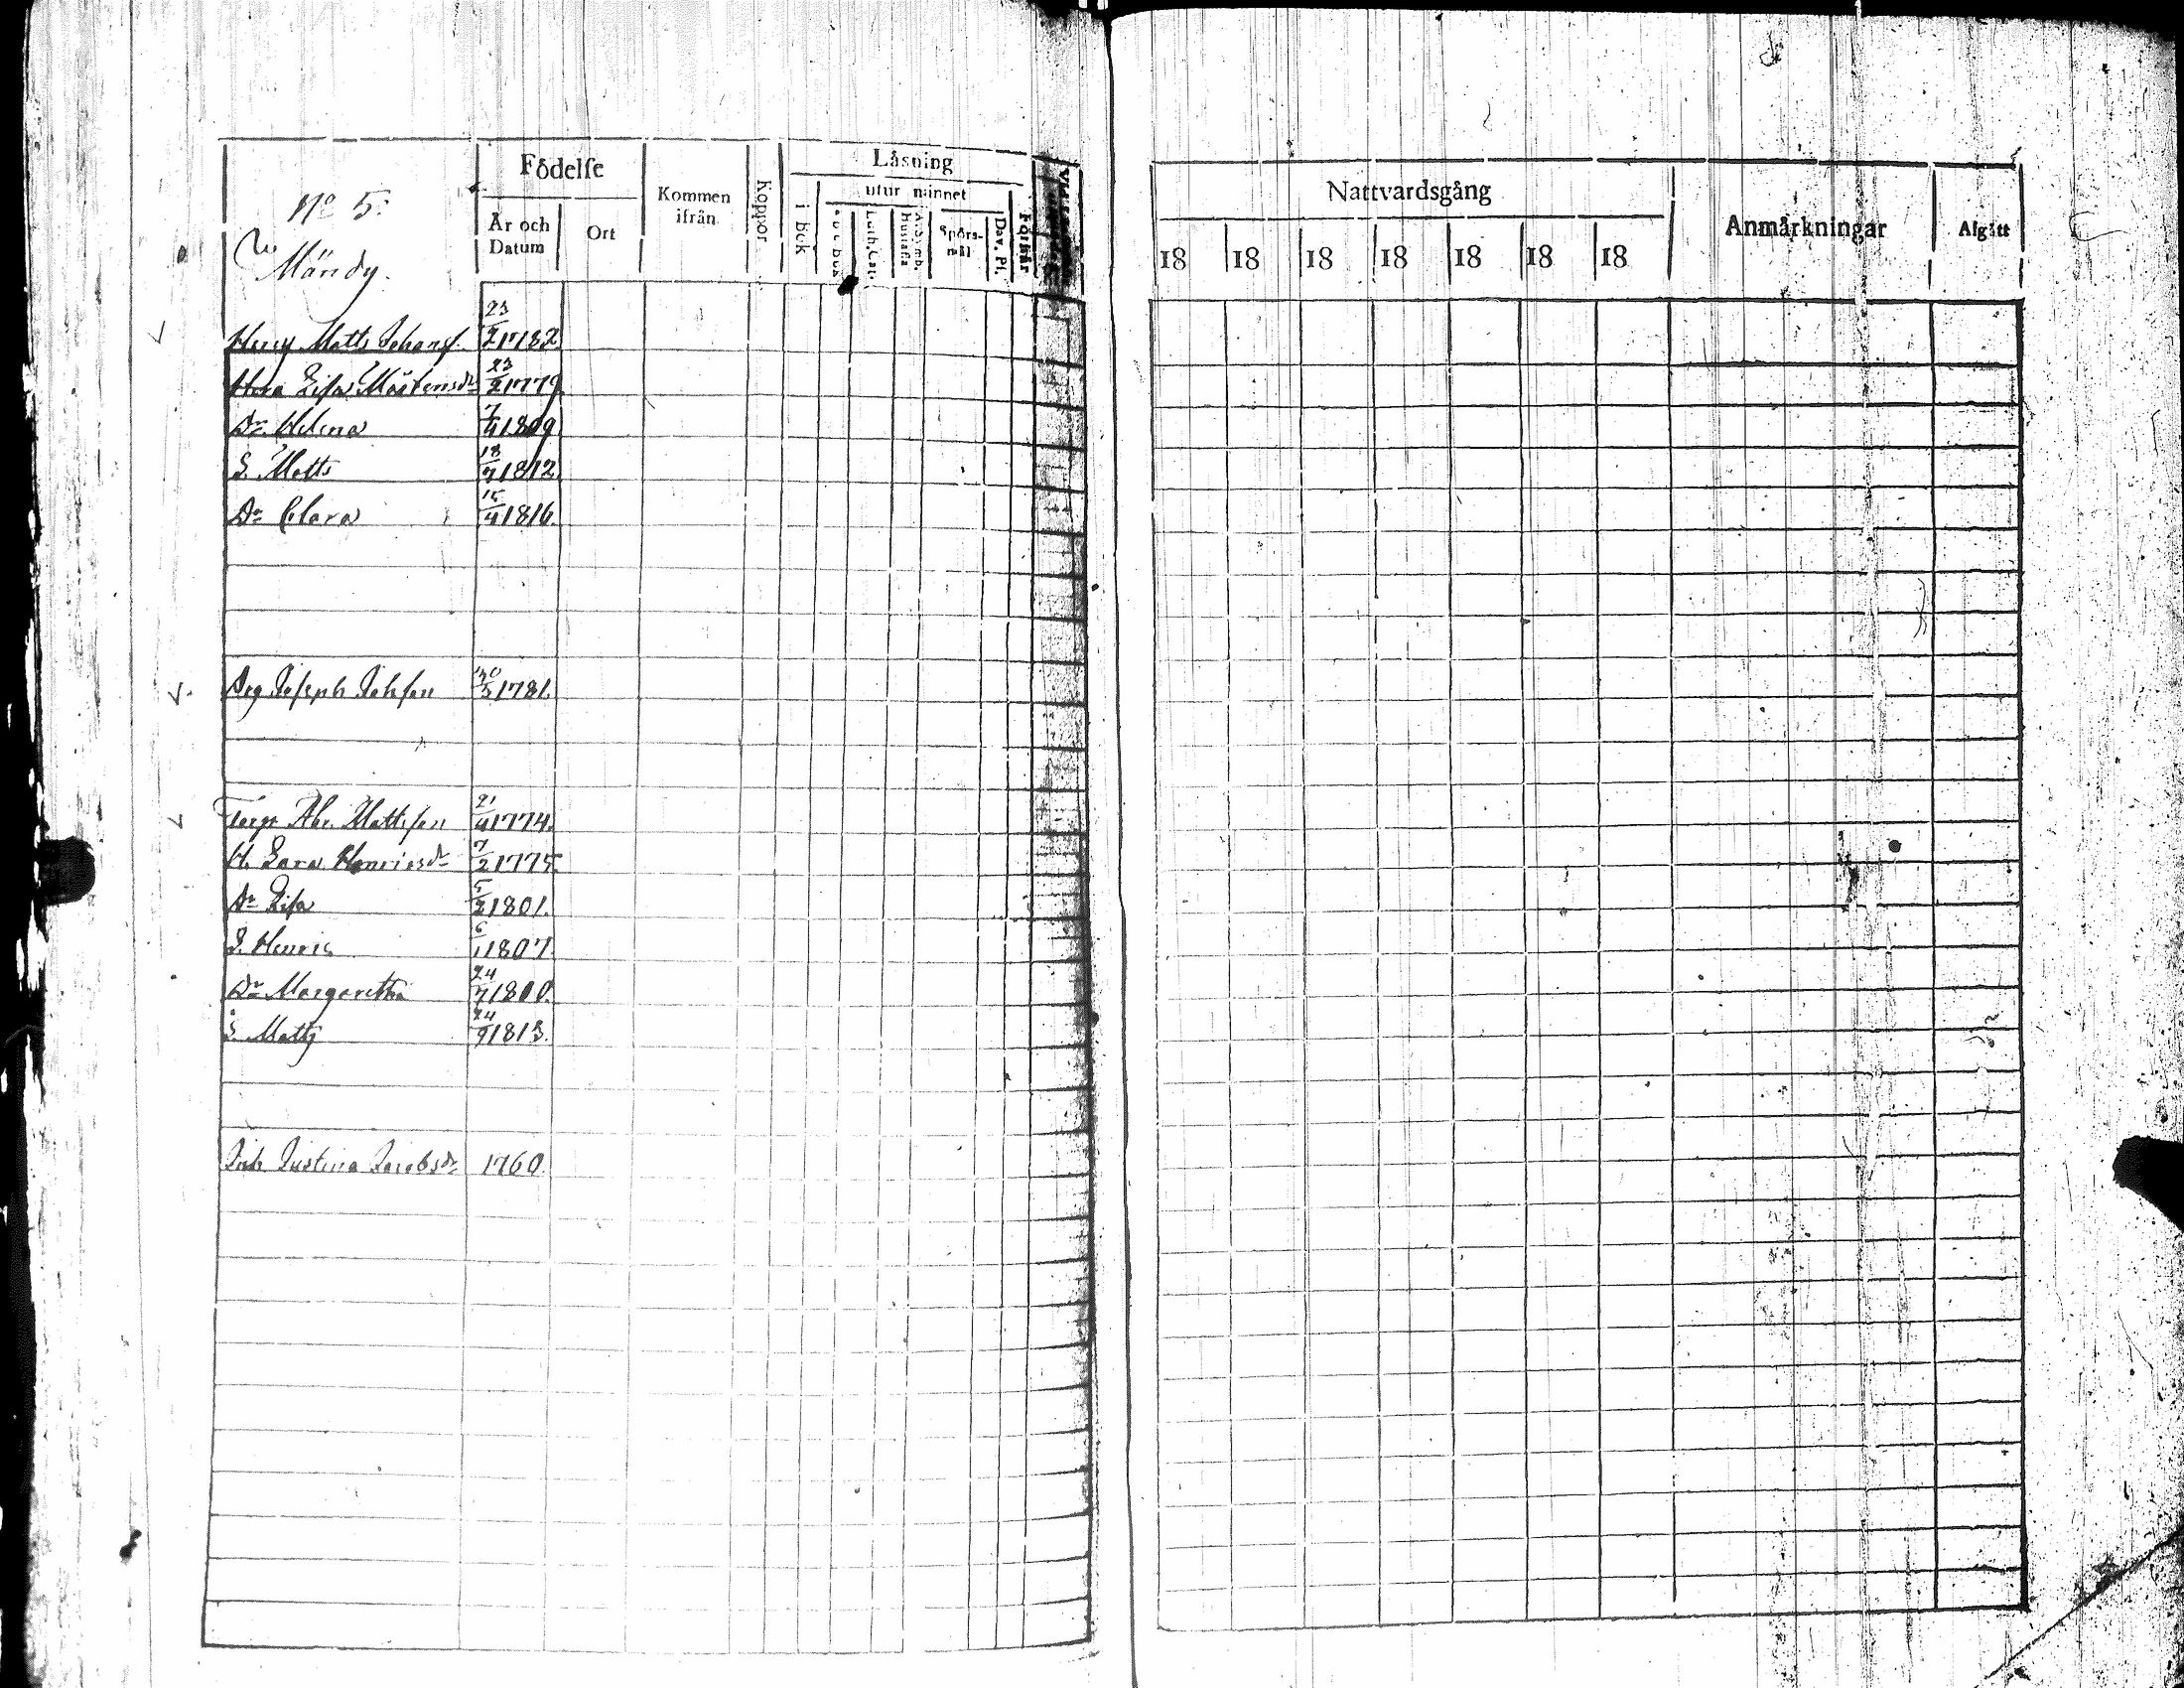 No 5:
Mändy.
Födelse
År och Datum
Ort
Kommen ifrån
Koppor
Låsning
i Bok
utur minnet
Luth. Cat.
A. Symb. Hustafla
Spörs-mål
Dav. Ps.
Förstår
Matts Johans. 23/2 1782.
Lisa Mårtensdr 23/2 1779.
Dr. Helena 7/4 1809
S. Matts 18/7 1812.
Dr Clara 15/4 1816.
Joseph Johsson 30/3 1781.
Torp. Abr. Mattsson 21/4 1774.
H. Sara Henricsdr 7/2 1775.
Dr Lisa 5/2 1801.
S. Henric 6/1 1807.
Dr Margaretha 24/7 1800.
S. Matts 24/9 1813.
Inh. Justina Jacobsdr 1760.
Nattvardsgång
18 18 18 18 18 18 18
Anmårkningar
Afgått